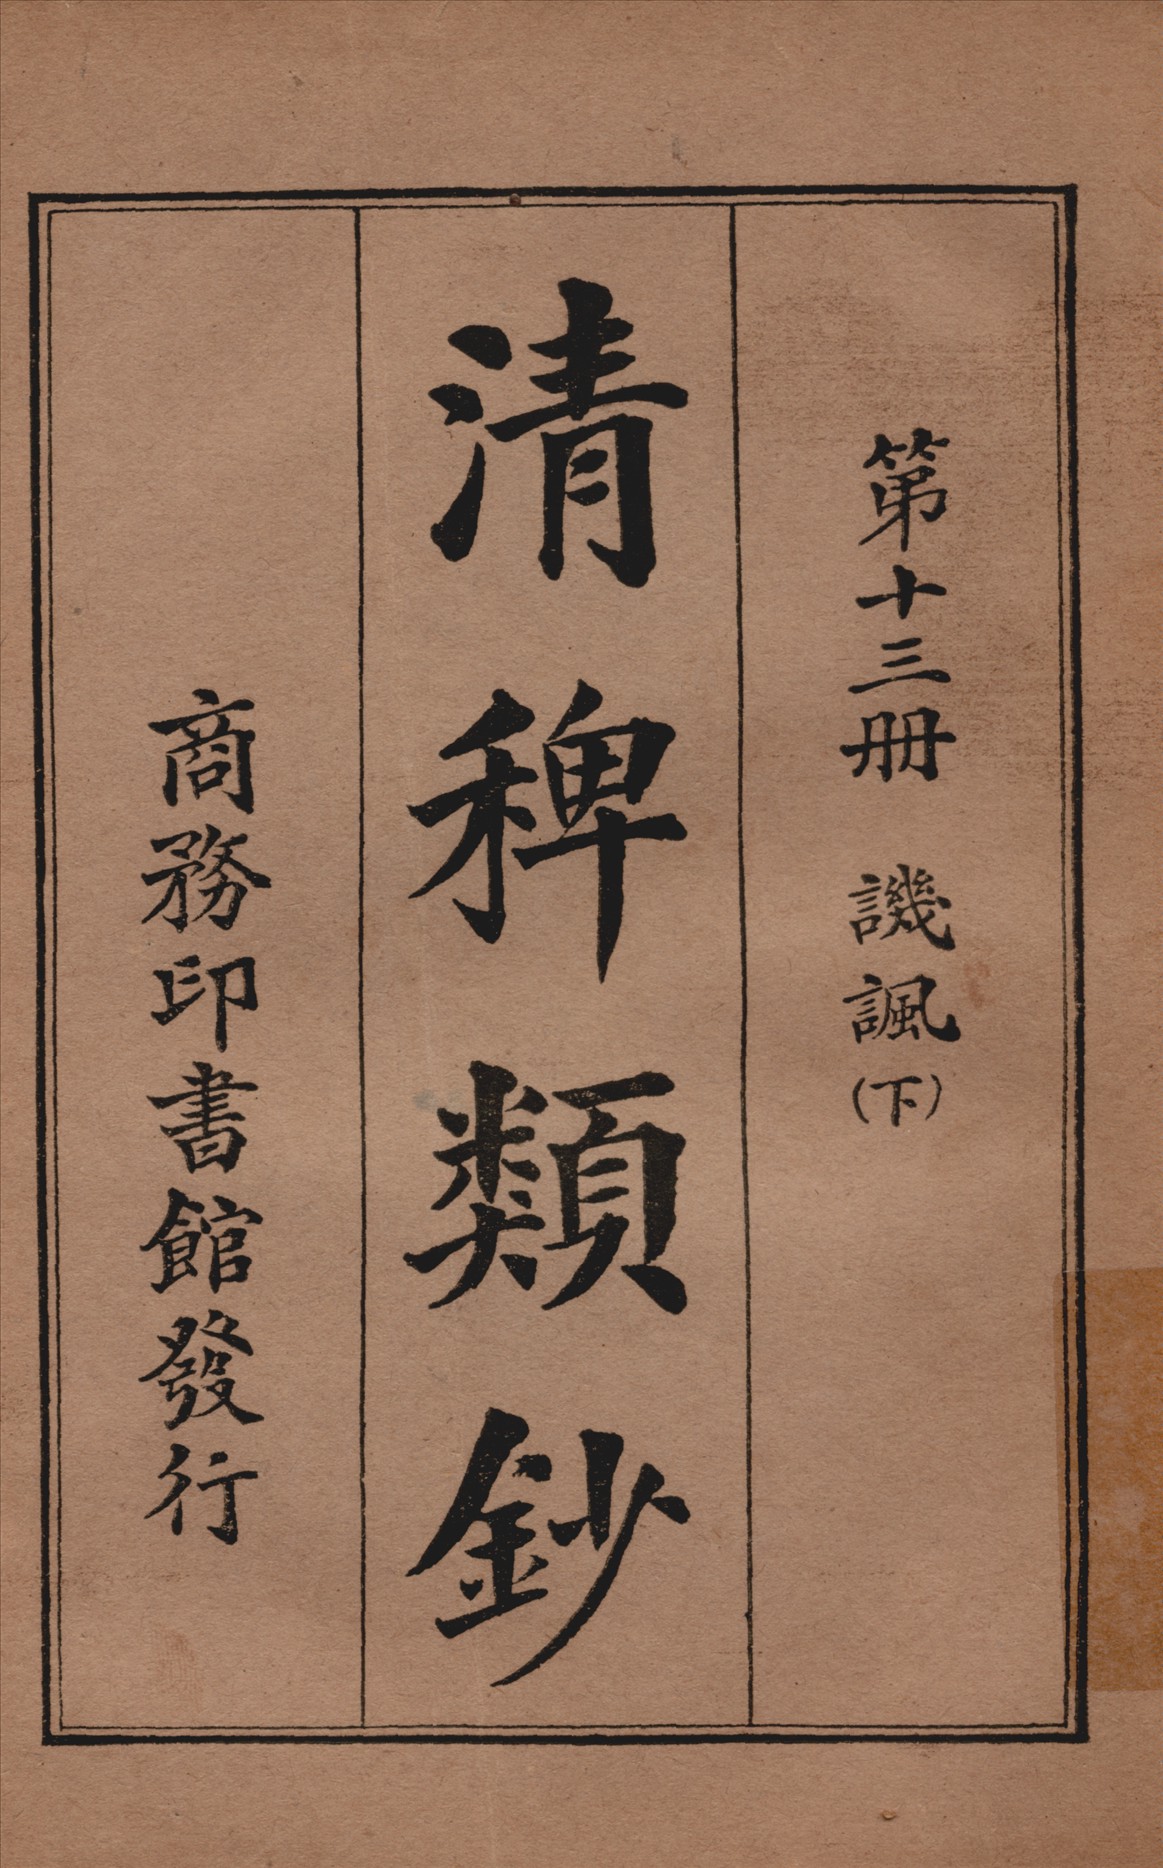 第十三册 譏諷(下)
清稗類鈔
商務印書館發行